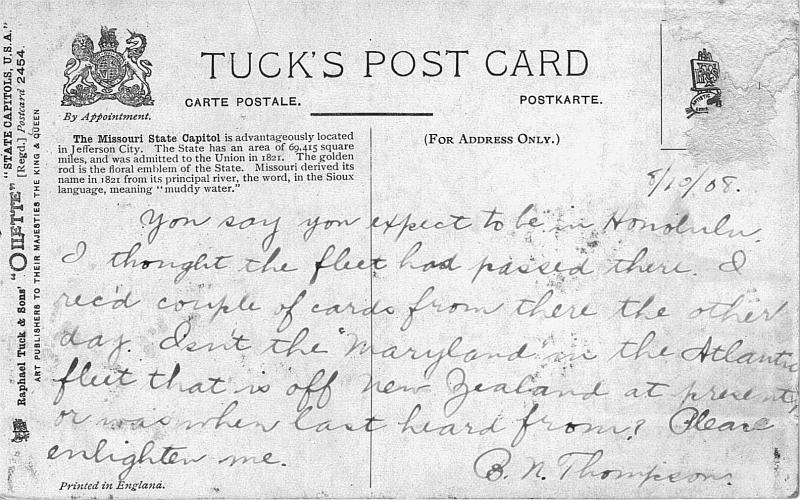 TUCK'S POST CARD
CARTE POSTALE.
POSTKARTE.
By Appointment.
(FOR ADDRESS ONLY.)
The Missouri State Capitol is advantageously located
in Jefferson City. The State has an area of 69,415 square
miles, and was admitted to the Union in 1821. The golden
rod is the floral emblem of the State. Missouri derived its
name in 1821 from its principal river, the word, in the Sioux
language, meaning "muddy water."
8/10/08.
You say you expect to be in Honolulu.
I thought the fleet had passed there. I
rec'd couple of cards from there the other
day. Isn't the "Maryland" in the Atlantic
fleet that is off New Zealand at present,
or was when last heard from? Please
enlighten me.
B. N. Thompson.
Printed in England.
Raphael Tuck & Sons' "OILETTE" "STATE CAPITOLS, U.S.A."
[Regd.] Postcard 2454.
ART PUBLISHERS TO THEIR MAJESTIES THE KING & QUEEN